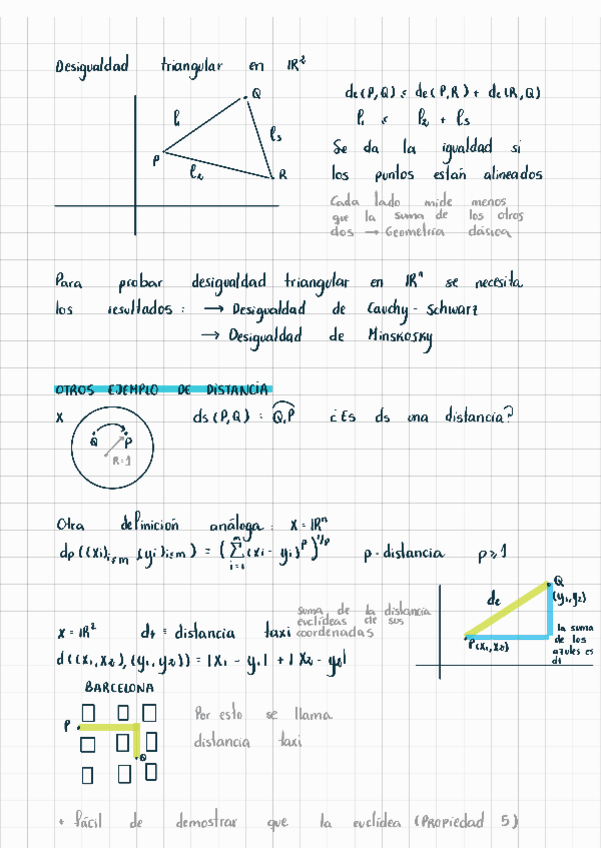 Desigualdad triangular en IR²
Q
l₁
l₃
P
l₂
R
de(P,Q) ≤ de(P,R) + de(R,Q)
l₁ ≤ l₂ + l₃
Se da la igualdad si
los puntos estań alineados
Cada lado mide menos
que la suma de los otros
dos → Geometría clásica
Para probar desigualdad triangular en IRⁿ se necesita
los resultados : → Desigualdad de Cauchy - Schwarz
→ Desigualdad de Minskosky
OTROS EJEMPLO DE DISTANCIA
X
Q P
R=1
ds(P,Q) : Q,P ¿Es ds una distancia?
Otra definición análoga : X = IRⁿ
dp((xi)i≤m, (yi)i≤m) = (∑(xi - yi)ᵖ)^1/p p-distancia p≥1
m
i=1
de
Q
(y₁,y₂)
P(x₁,x₂)
la suma
de los
azules es
d1
suma de la distancia
euclídeas de sus
coordenadas
X = IR² d1 = distancia taxi
d((x₁,x₂),(y₁,y₂)) = |x₁ - y₁| + |x₂ - y₂|
BARCELONA
P
Q
Por esto se llama
distancia taxi
+ fácil de demostrar que la euclídea (Propiedad 5)